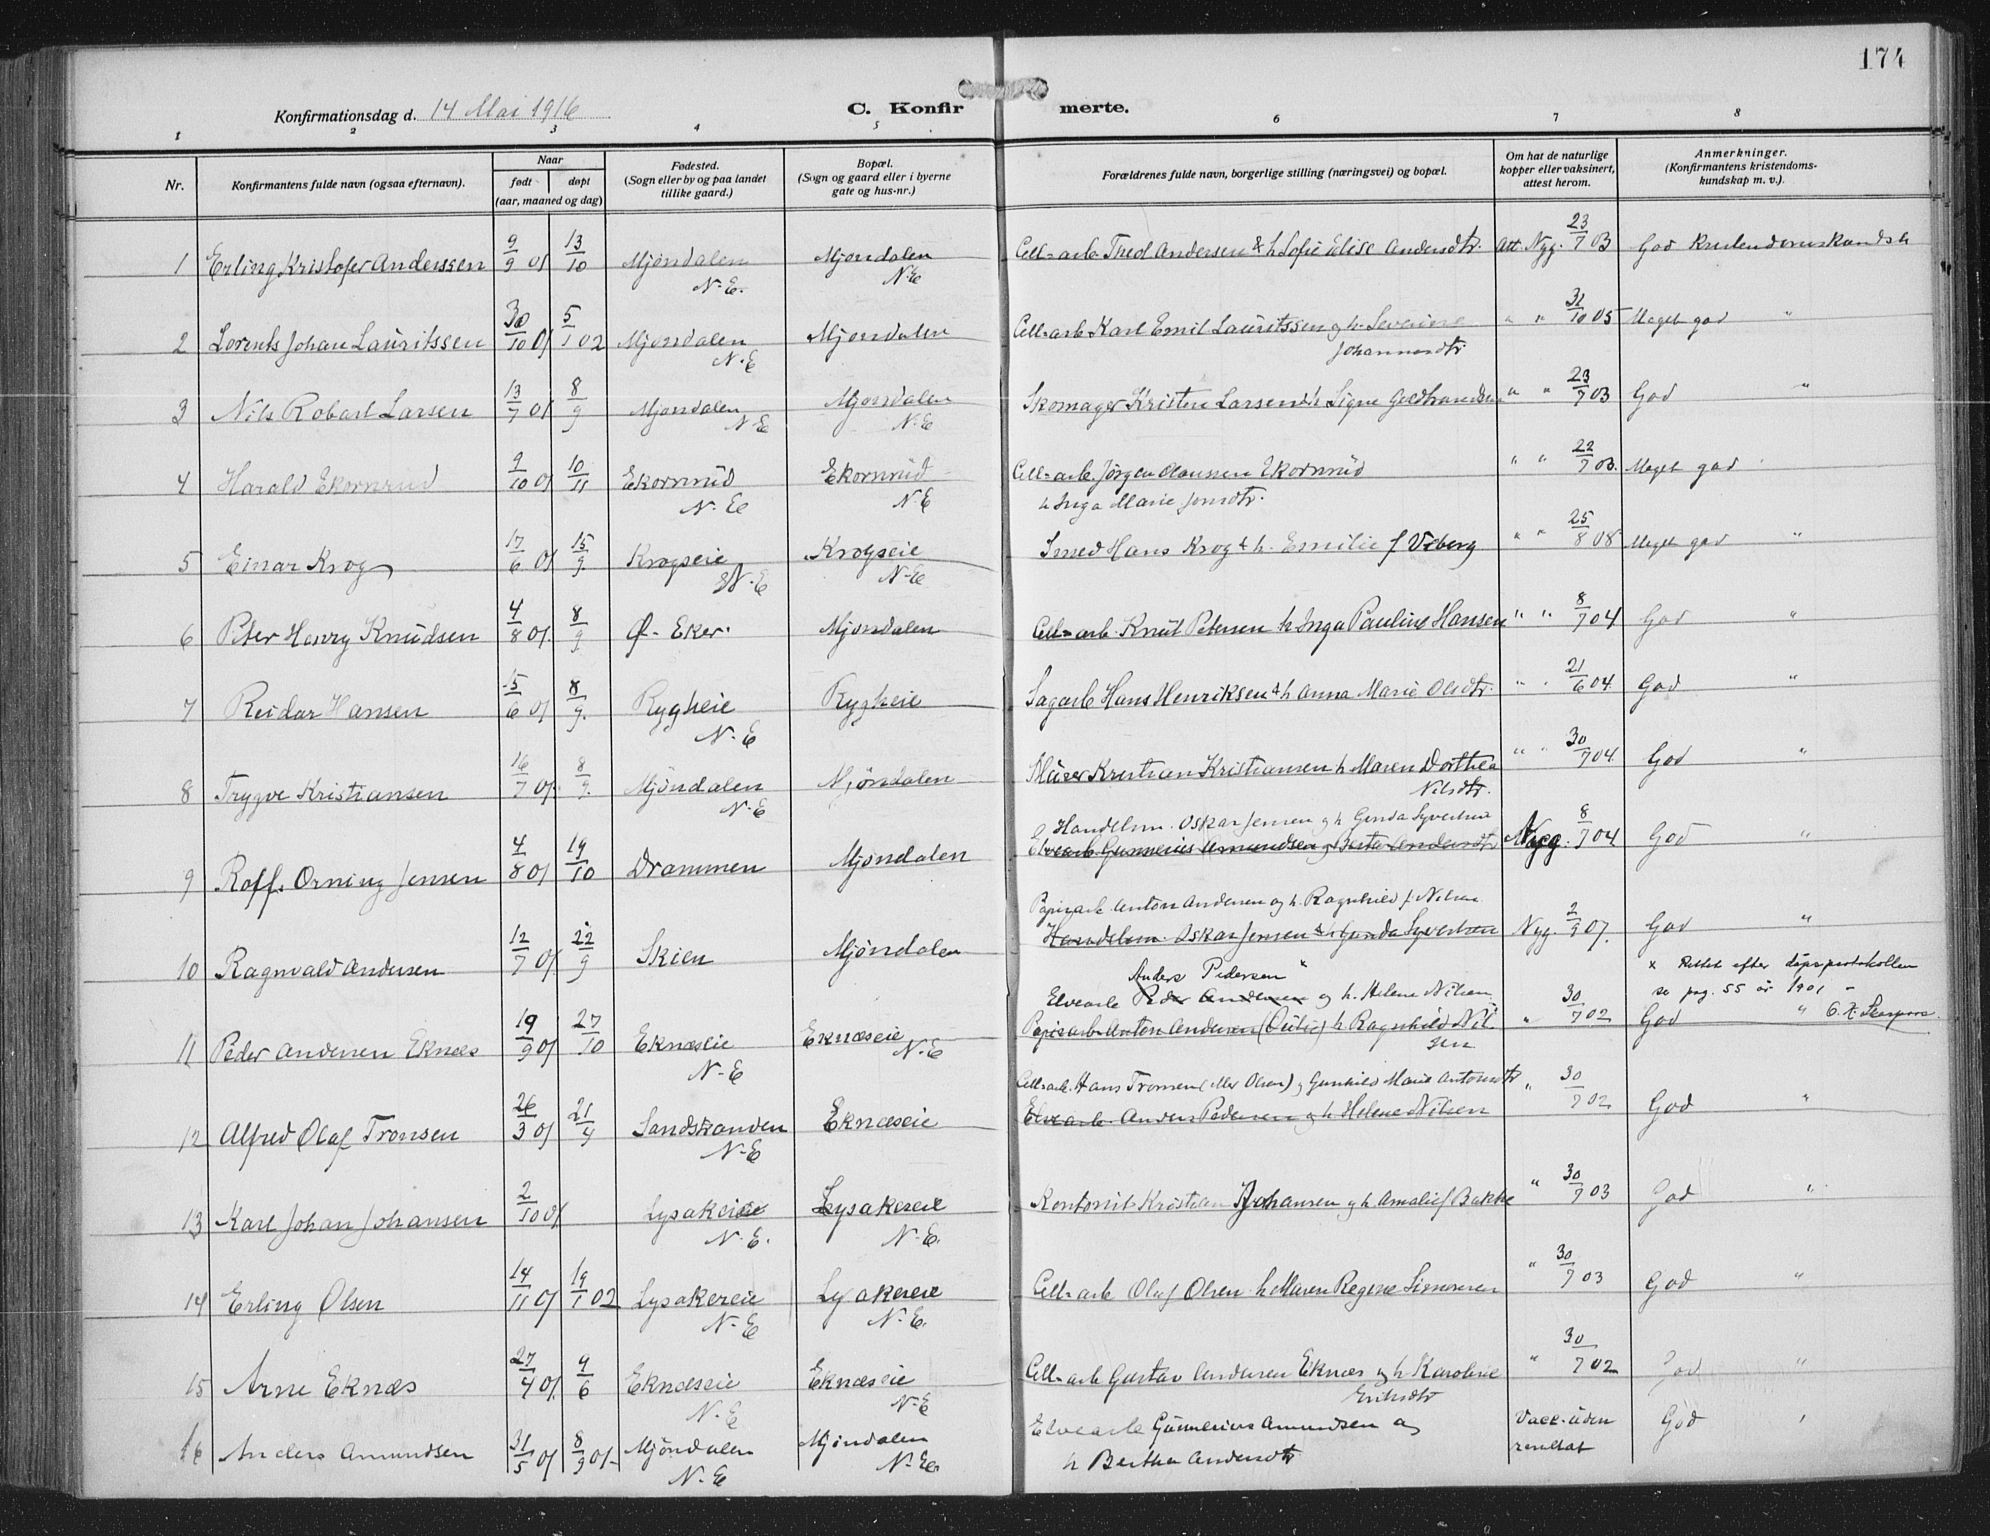 174
Konfirmationsdag d. 14 Mai 1916
C. Konfirmerte.
1 2 3 4 5 6 7 8
Nr. Konfirmantens fulde navn (ogsaa efternavn). Naar født døpt (aar, maaned og dag) Fødested. (Sogn eller by og paa landet tillike gaard.) Bopæl. (Sogn og gaard eller i byerne gate og hus-nr.) Forældrenes fulde navn, borgerlige stilling (næringsvei) og bopæl. Om hat de naturlige kopper eller vaksinert, attest herom. Anmerkninger. (Konfirmantens kristendoms-kundskap m. v.).
1 Erling Kristofer Anderssen 9/9 01 13/10 Mjøndalen N-E. Mjøndalen N-E Cell-arb. Tred Andersen & h. Sofie Elise Andersdtr. Att. Nyg. 23/7 03 God
2 Lorents Johan Lauritssen 30/10 01 5/1 02 Mjøndalen N-E Mjøndalen Cell-arb. Karl Emil Lauritssen og h. Severine Johannesdtr. " " 31/10 05 Meget god "
3 Nils Robart Larsen 13/7 01 8/9 Mjøndalen N-E Mjøndalen N-E Skomager Kristen Larsen & h. Signe " " 23/7 03 God "
4 Harald Ekornrud 9/10 01 10/11 Ekornrud N-E Ekornrud N-E Cell-arb. Jørgen Olaussen Ekornrud h Inga Marie Jonsdtr. " " 22/7 03. Meget god
5 Einar Krog 17/6 01 15/9. Krogseie N-E Krogseie N-E Smed Hans Krog & h. Emilie f Viberg " " 25/8 08 Meget god "
6 Peter Henry Knudsen 4/8 01. 8/9 Ø-Eker. Mjøndalen Cell-arb. Knut Petersen h Inga Pauline Hansen " " 8/7 04 God "
7 Reidar Hansen 15/6 01 8/9. Rygheie N-E Rygheie Sagarb Hans Henriksen & h Anna Marie Olsdtr. " " 21/6 04 God "
8 Trygve Kristiansen 16/7 01. 8/9. Mjøndalen N-E Mjøndalen Murer Kristian Kristiansen h Maren Dorthea Nilsdtr. " " 30/7 04 God "
9 Rolf Orning Jensen 4/8 01 19/10 Drammen Mjøndalen Handelsm. Oskar Jensen og h Gunda Syvertsen
Elvearb. Gunnerius Amundsen og Berta Andersdtr Nyg. 8/7 04 God "
10 Ragnvald Andersen 12/7 01 22/9 Skien Mjøndalen Papirarb Anton Andersen og h. Ragnhild f. Nilsen
Handelsm. Oskar Jensen & h Gunda Syvertsen Nyg. 2/9 07. God "
11 Peder Andersen Eknæs 19/9 01 27/10 Eknæseie N-E Eknæseie N-E Anders Pedersen x
Elvearb Peder Andersen og h. Helene Nilsen
Papirarb Anton Andersen h Ragnhild Nilsen " 30/7 02 God "
x Rettet efter dåpsprotokollen se pag. 55 år 1901
12 Alfred Olaf Tronsen 26/3 01 21/4 Sandstranden N-E Eknæseie Cell-arb. Hans Tronsen (eller Olsen) og Gunhild Marie Antonsdtr
Elvearb. Anders Pedersen og h Helene Nilsen " 30/7 02 God "
13 Karl Johan Johansen 2/10 01 Lysakereie N-E. Lysakereie N-E. Kristian Johansen og h Amalie f Bakke " 30/7 03 God "
14 Erling Olsen 14/11 01 19/1 02 Lysakereie N-E Lysakereie N-E. Cell-arb Olaf Olsen h Maren Regine Simonsen " 30/7 03 God "
15 Arne Eknæs 27/4 01. 9/6 Eknæseie N-E Eknæseie N-E Cell-arb Gustav Andersen Eknæs og h Karoline Eriksdtr " 30/7 02 God "
16 Anders Amundsen 31/5 01 8/9 01- Mjøndalen N-E Mjøndalen N-E. Elvearb Gunnerius Amundsen og h Bertha Andersdtr Vacc. uden resultat God